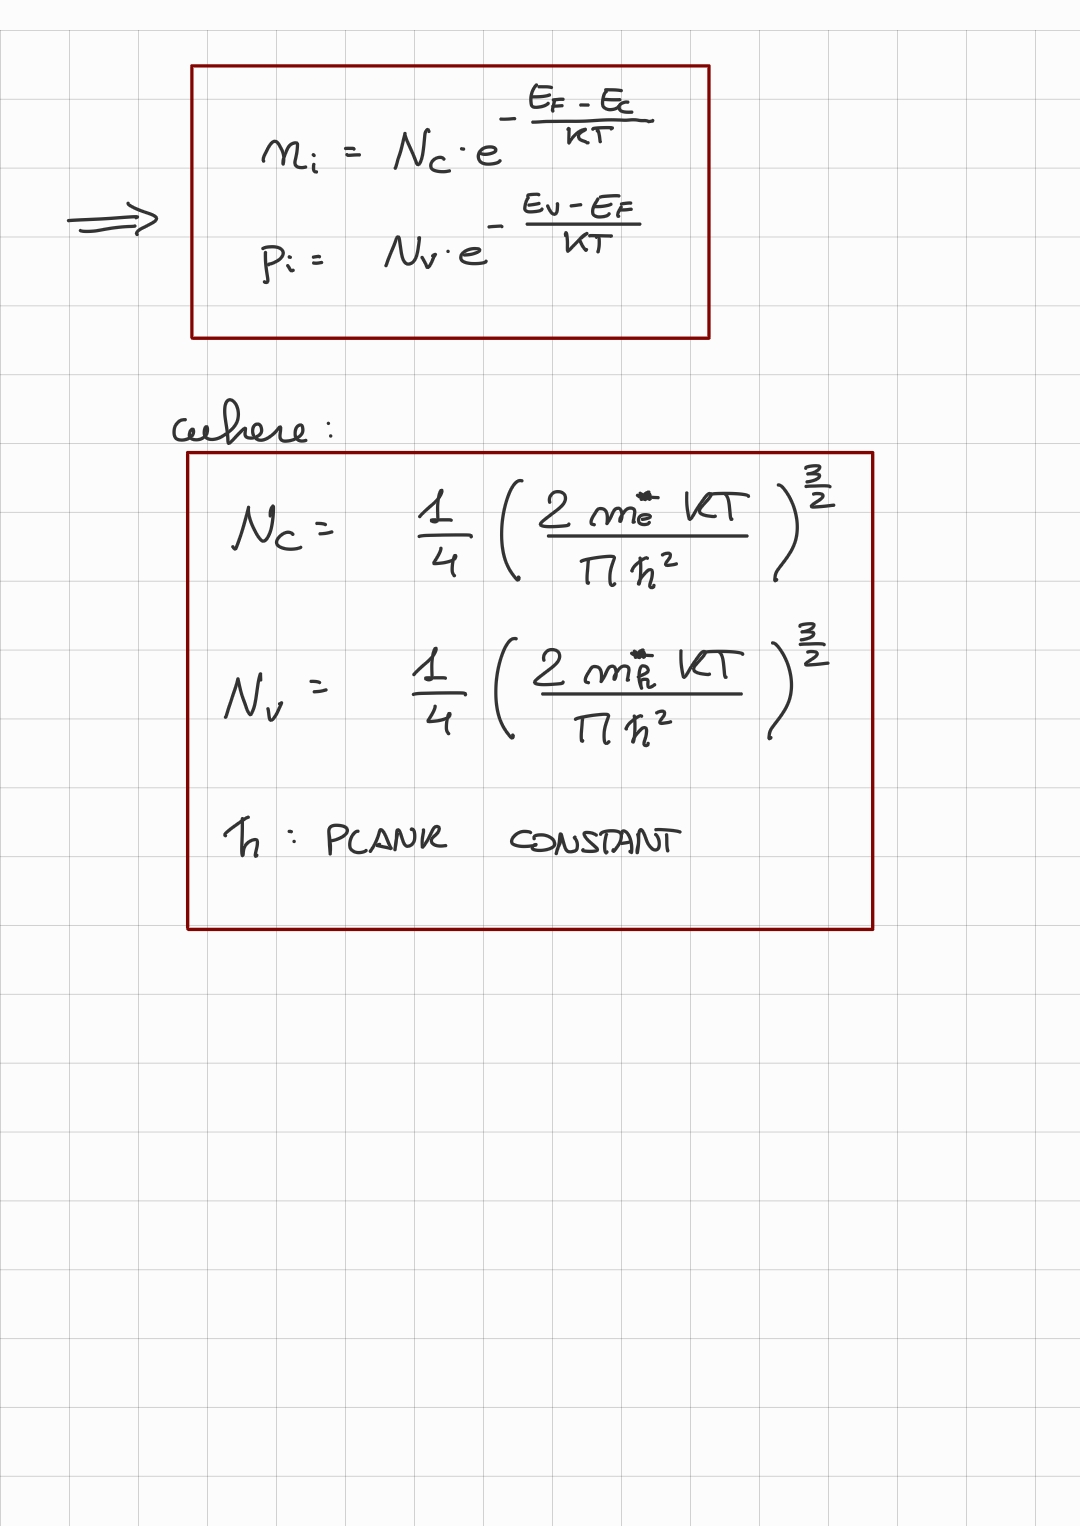 n_i = N_C · e^{- \frac{E_F - E_C}{KT}}
⟹
p_i = N_V · e^{- \frac{E_V - E_F}{KT}}
where :
N_C = \frac{1}{4} \left( \frac{2 m_e^* KT}{π ħ^2} \right)^{\frac{3}{2}}
N_V = \frac{1}{4} \left( \frac{2 m_h^* KT}{π ħ^2} \right)^{\frac{3}{2}}
ħ : PLANK CONSTANT